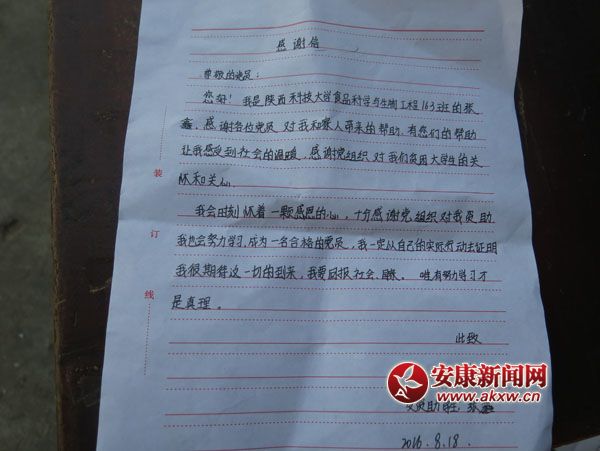 感谢信
尊敬的党员：
您好！我是陕西科技大学食品科学与生物工程163班的张
鑫，感谢各位党员对我和家人带来的帮助，有您们的帮助
让我感受到社会的温暖，感谢党组织对我们贫困大学生的关
怀和关心。
我会时刻怀着一颗感恩的心，十分感谢党组织对我资助
我也会努力学习，成为一名合格的党员，我一定从自己的实际行动去证明
我很期待这一切的到来，我要回报社会、唯有努力学习才
是真理。
此致
装
订
线
安康新闻网
www.akxw.cn
张鑫
2016.8.18.